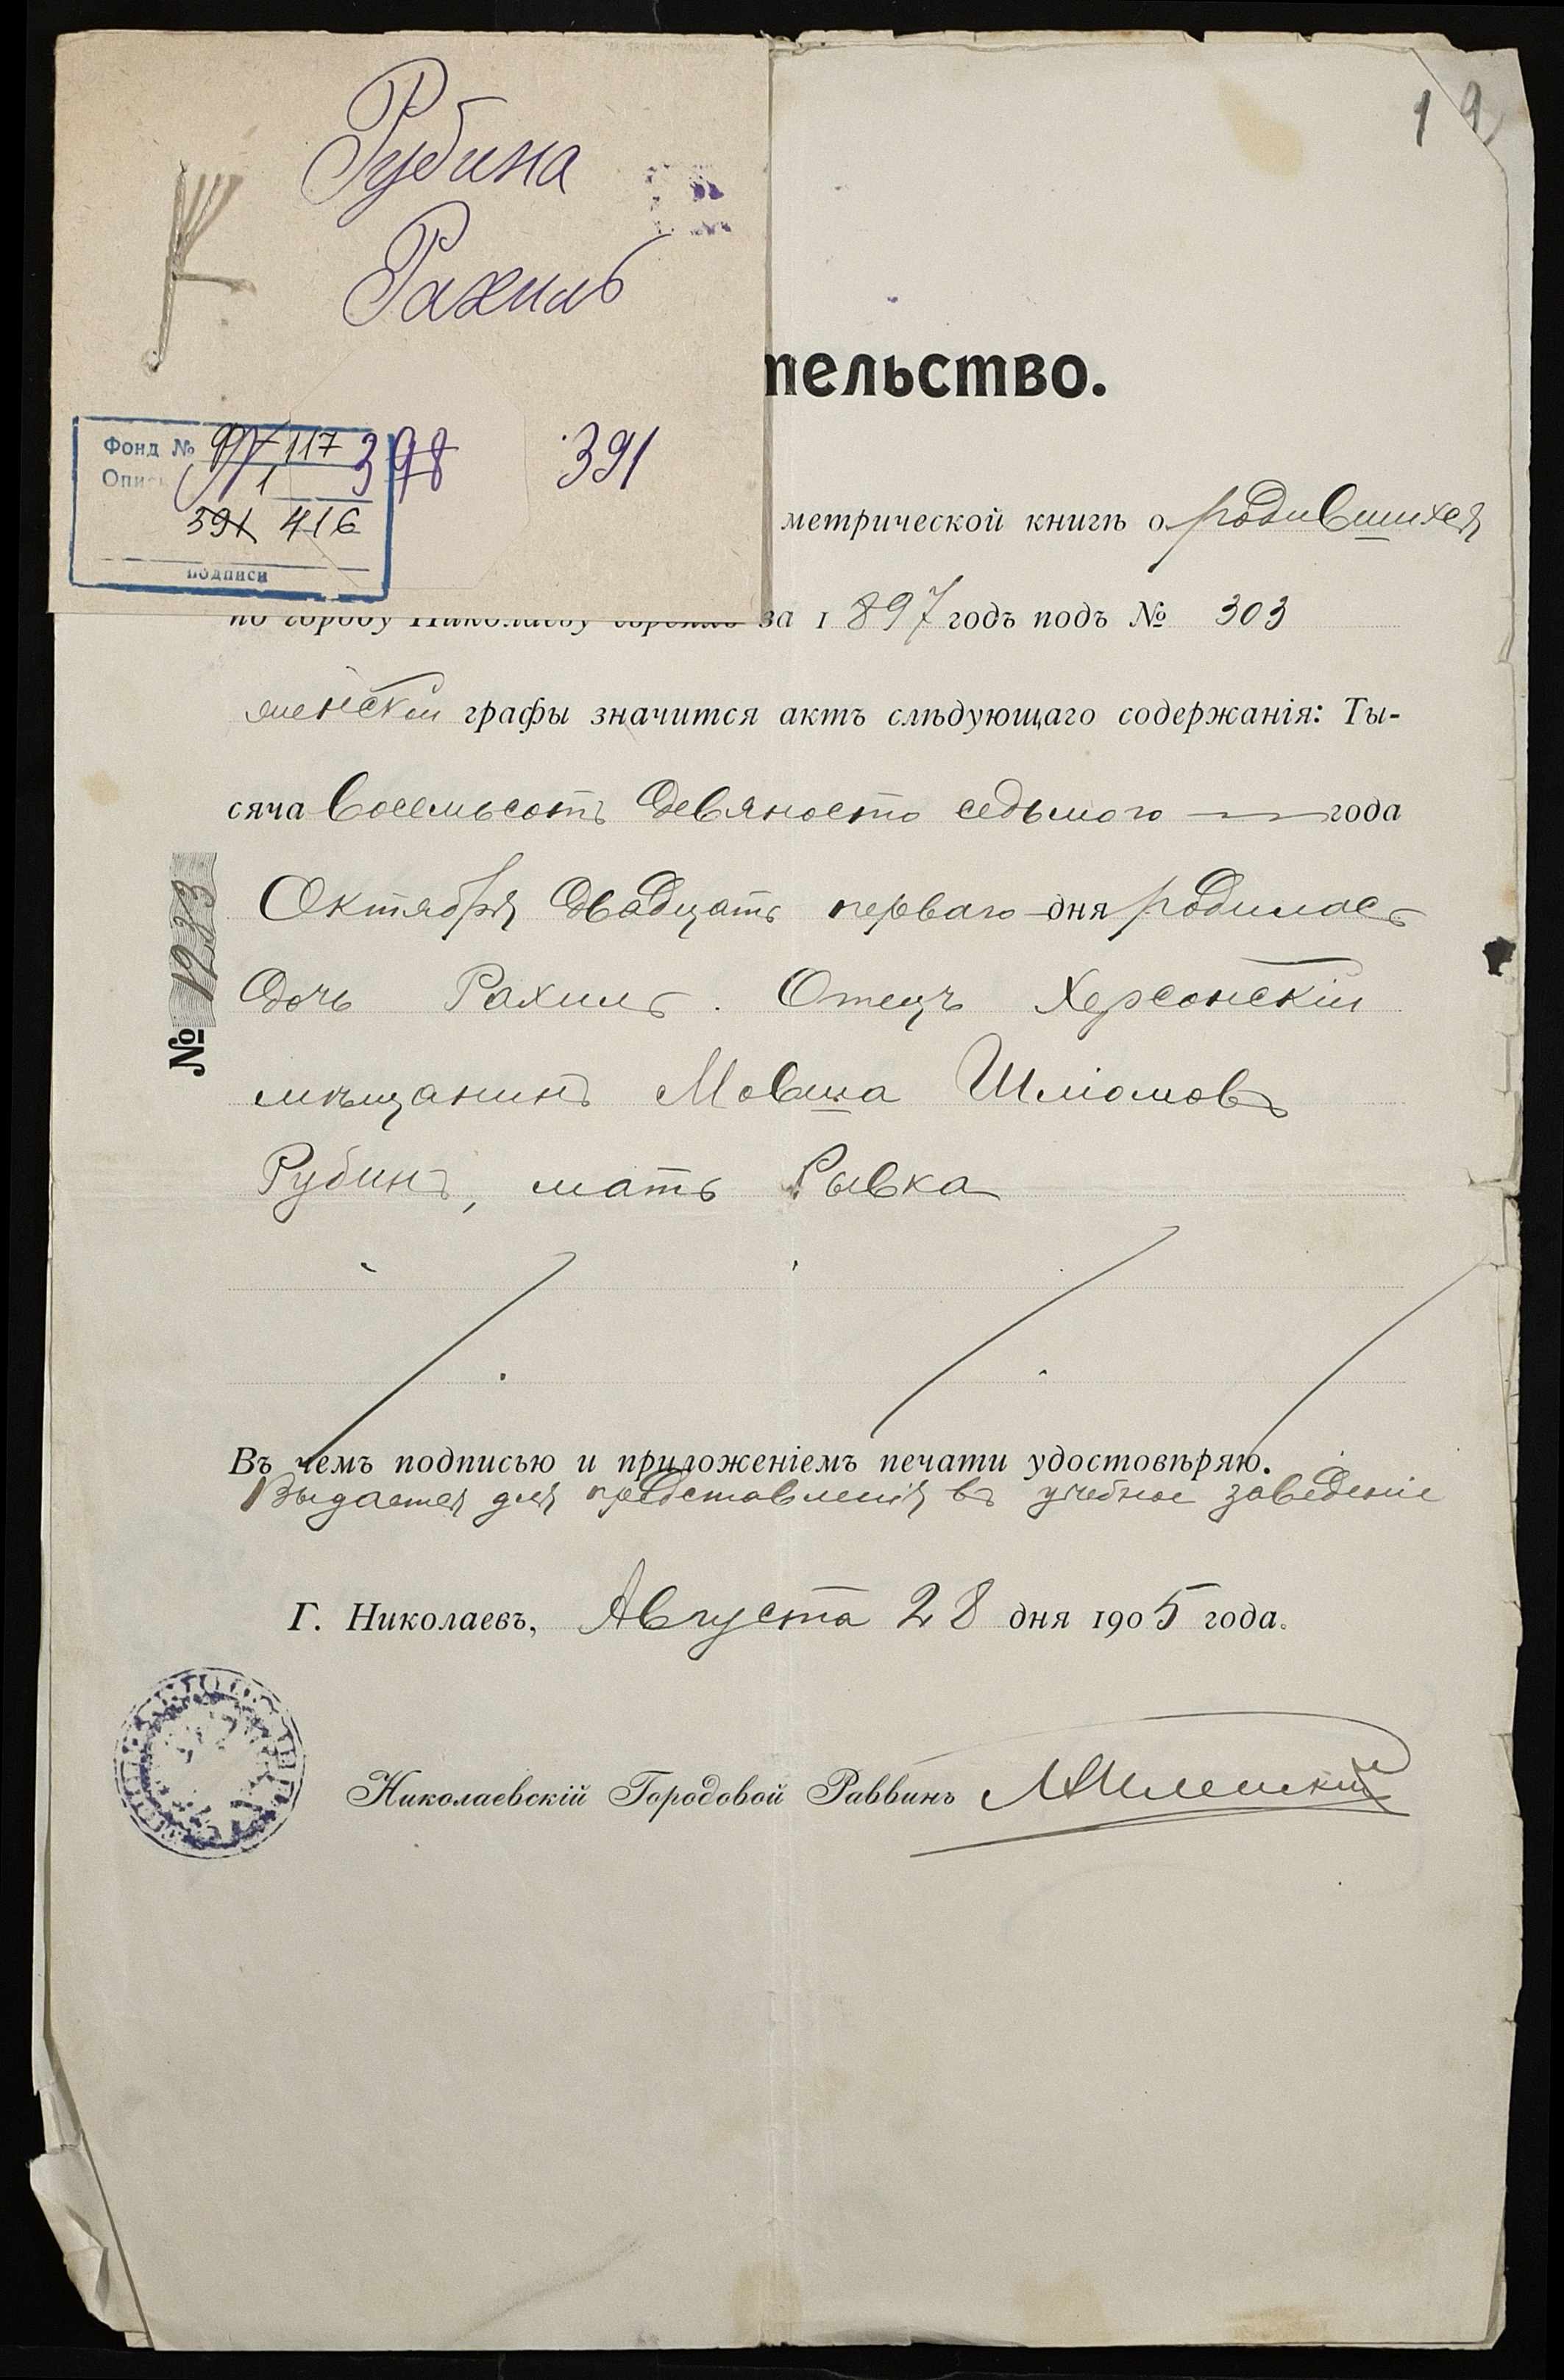 Рубина
Рахиль
Фонд № 97 117 398 391
1
391 416
подписи
19
тельство.
метрической книгѣ о родившихся
по городу Николаеву евреяхъ за 1897 годъ подъ № 303
женской графы значится актъ слѣдующаго содержанія: Ты-
сяча восемьсотъ девяносто седьмого года
Октября двадцать перваго дня родилась
дочь Рахиль. Отецъ Херсонскій
мѣщанинъ Мовша Шліомовъ
Рубинъ, мать Рывка
Въ чемъ подписью и приложеніемъ печати удостовѣряю.
Выдается для представленія въ учебное заведеніе
Г. Николаевъ, Августа 28 дня 1905 года.
Николаевскій Городовой Раввинъ
№ 1283